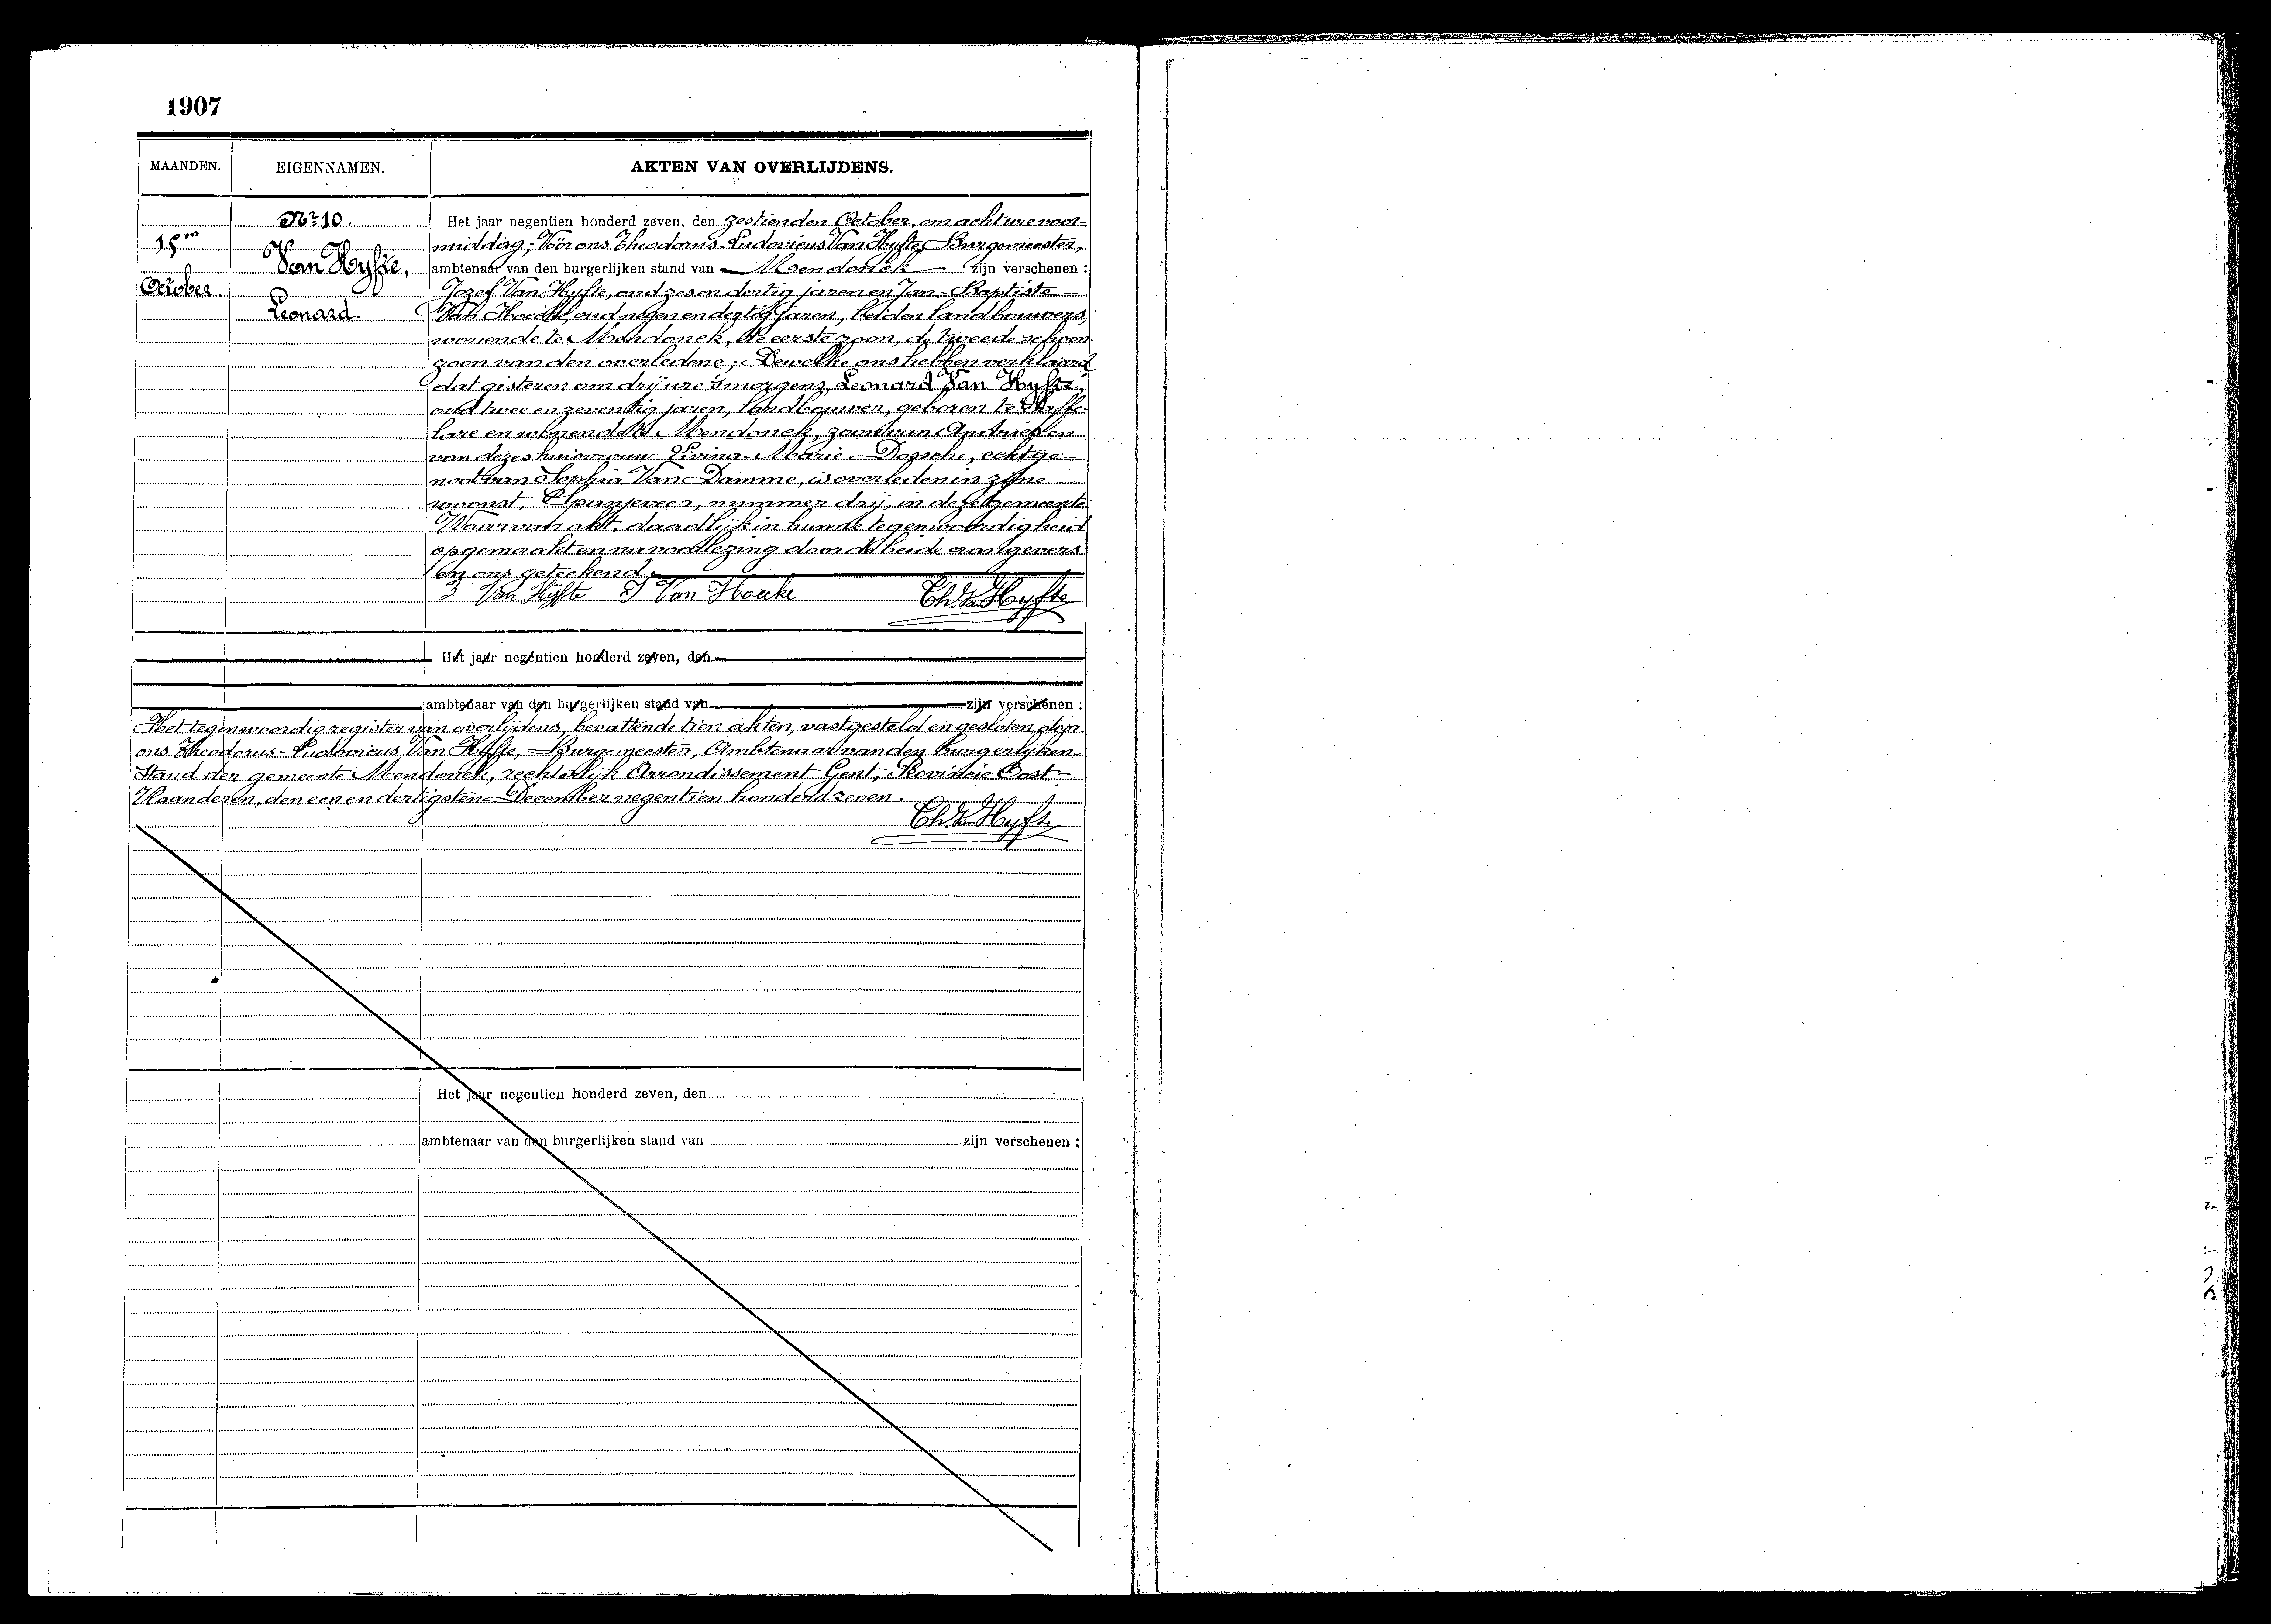 1907
MAANDEN.
EIGENNAMEN.
AKTEN VAN OVERLIJDENS.
15en
October.
Nr 10.
Van Hyfte,
Leonard.
Het jaar negentien honderd zeven, den zestienden October, om acht ure voor-
middag; Voor ons Theodorus-Ludovicus Van Hyfte, Burgemeester,
ambtenaar van den burgerlijken stand van Mendonck zijn verschenen :
Jozef Van Hyfte, oud zes en dertig jaren en Jan-Baptiste
Van Hoecke, oud negen en dertig jaren, beiden landbouwers,
wonende te Mendonck, de eerste zoon, de tweede schoon-
zoon van den overledene; Dewelke ons hebben verklaard
dat gisteren om drij ure 's morgens, Leonard Van Hyfte,
oud twee en zeventig jaren, landbouwer, geboren te Desteffe-
lare en wonende te Mendonck, zoon van Andries en
van dezes huisvrouw Livina-Marie Dossche, echtge-
noot van Sophia Van Damme, is overleden in zijne
woonst, Spanjeveer, nummer drij, in deze gemeente.
Waarvan akt, daadlijk in hunne tegenwoordigheid
opgemaakt en na voorlezing door de beide aangevers
en ons geteekend.
J Van Hyfte J Van Hoecke Th. Van Hyfte
Het jaar negentien honderd zeven, den
ambtenaar van den burgerlijken stand van zijn verschenen :
Het tegenwoordig register van overlijdens, bevattende tien akten, vastgesteld en gesloten door
ons Theodorus-Ludovicus Van Hyfte, Burgemeester, Ambtenaar van den burgerlijken
Stand der gemeente Mendonck, rechterlijk Arrondissement Gent, Provincie Oost-
Vlaanderen, den een en dertigsten December negentien honderd zeven.
Th. Van Hyfte
Het jaar negentien honderd zeven, den
ambtenaar van den burgerlijken stand van zijn verschenen :